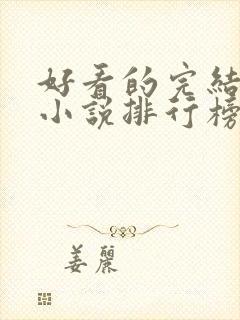 好看的完結
小說排行榜
姜麗